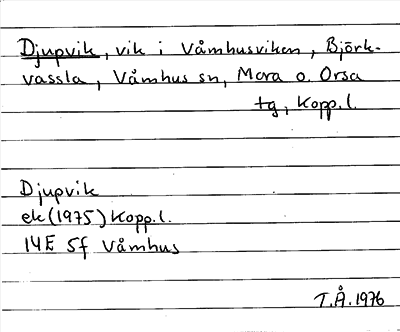 Djupvik, vik i Våmhusviken, Björk-
vassla, Våmhus sn, Mora o. Orsa
tg, Kopp.l.
Djupvik
ek (1975) Kopp.l.
14E 5f Våmhus
T.Å. 1976